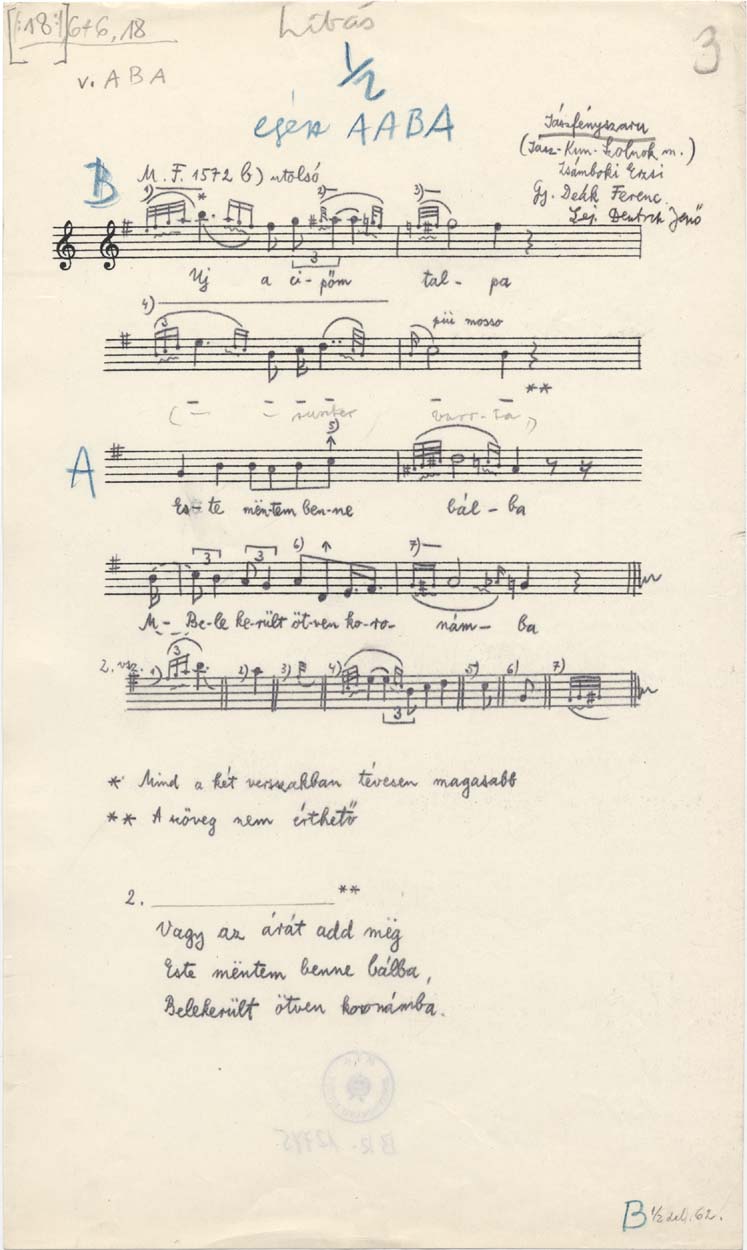 [:18:] 6+6, 18
Libás
3
v. A B A
1/2
egész AABA
Jászfényszaru
(Jász-Kun-Szolnok m.)
Zsámboki Erzsi
Gy. Deák Ferenc.
Lej. Deutsch Jenő
B
M. F. 1572 b) utolsó
1) * 2) 3)
3
Uj a ci-pőm tal- pa
4)
3
più mosso
**
varr-ta,)
5)
A
Es-te mën-tem ben-ne bál-ba
3 3 6) 7)
M- Be-le ke-rült öt-ven ko-ro- nám- ba
2. vsz. 1) 2) 3) 4) 5) 6) 7)
3
3
* Mind a két versszakban tévesen magasabb
** A szöveg nem érthető
2. **
Vagy az árát add mëg
Este mëntem benne bálba,
Belekerült ötven koronámba.
BR. 12775
B 1/2 del. 62.